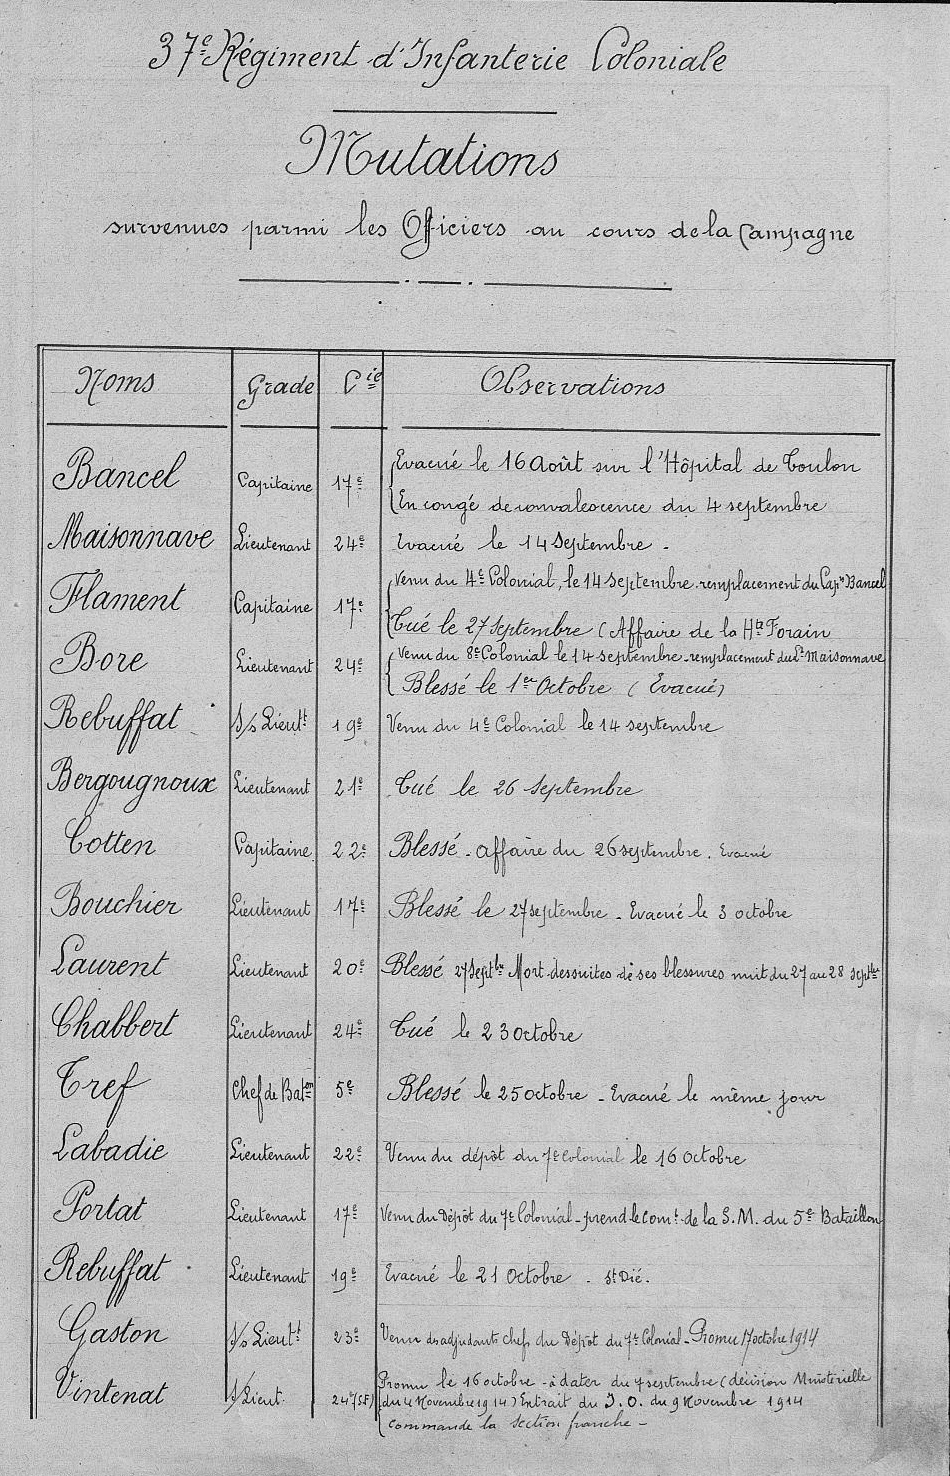 37e Régiment d'Infanterie Coloniale
Mutations
survenues parmi les Officiers au cours de la Campagne
Noms Grade Cie Observations
Bancel Capitaine 17e Evacué le 16 Août sur l'Hôpital de Toulon
En congé de convalescence du 4 septembre
Maisonnave Lieutenant 24e Evacué le 14 Septembre -
Flament Capitaine 17e Venu du 4e Colonial, le 14 septembre remplacement du Capne Bancel
Tué le 27 Septembre (Affaire de la Hte Forain
Bore Lieutenant 24e Venu du 8e Colonial le 14 septembre - remplacement du Lt Maisonnave
Blessé le 1er Octobre (Evacué)
Rebuffat S/s Lieutt 19e Venu du 4e Colonial le 14 septembre
Bergougnoux Lieutenant 21e Tué le 26 Septembre
Cotten Capitaine 22e Blessé - affaire du 26 septembre. Evacué
Bouchier Lieutenant 17e Blessé le 27 septembre - Evacué le 3 octobre
Laurent Lieutenant 20e Blessé 27 Septbre Mort des suites de ses blessures nuit du 27 au 28 septbre
Chabbert Lieutenant 24e Tué le 23 Octobre
Tref Chef de Baton 5e Blessé le 25 octobre - Evacué le même jour
Labadie Lieutenant 22e Venu du dépôt du 7e Colonial le 16 Octobre
Portat Lieutenant 17e Venu du Dépôt du 7e Colonial - prend le comt de la S.M. du 5e Bataillon
Rebuffat Lieutenant 19e Evacué le 21 Octobre - St Dié.
Gaston S/s Lieutt 23e Venu des adjudants chefs du Dépôt du 7e Colonial - Promu 17 octobre 1914
Vintenat S/Lieut. 24e (SF) Promu le 16 octobre - à dater du 7 septembre (décision Ministérielle
du 4 Novembre 1914) Extrait du J.O. du 9 Novembre 1914
commande la section franche -